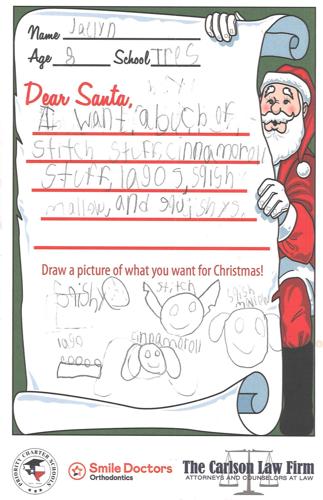 Name Jaclyn
Age 8 School Tres
Dear Santa,
I want, a buch of,
stitch stuff, cinnamoroll
stuff, lagos, sqish
mallow, and squishys.
Draw a picture of what you want for Christmas!
sqishy stitch sqish
lago cinnamoroll
PRIORITY CHARTER SCHOOLS
Smile Doctors
Orthodontics
The Carlson Law Firm
ATTORNEYS AND COUNSELORS AT LAW